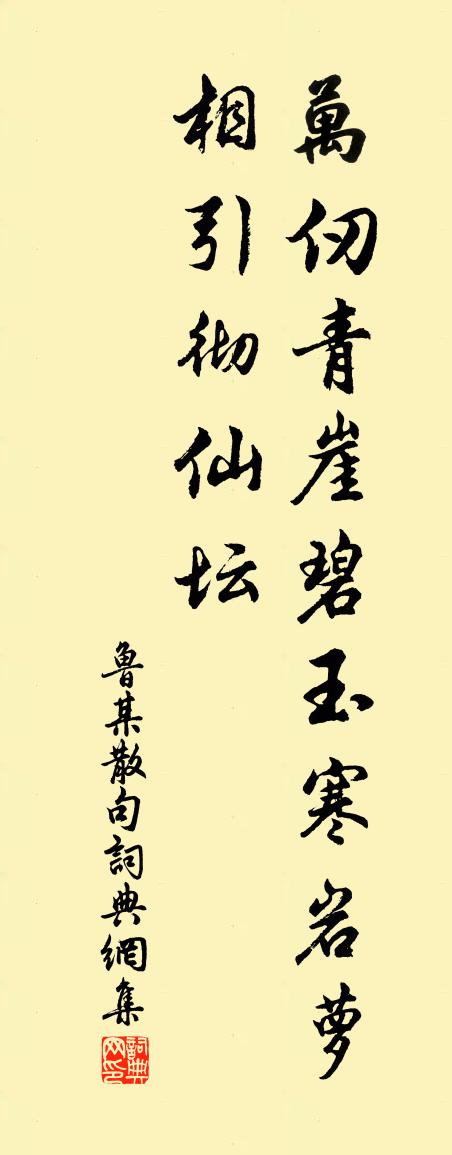 萬仞青崖碧玉寒岩萝
相引彻仙坛
鲁某散句詞典網集
詞典
网印